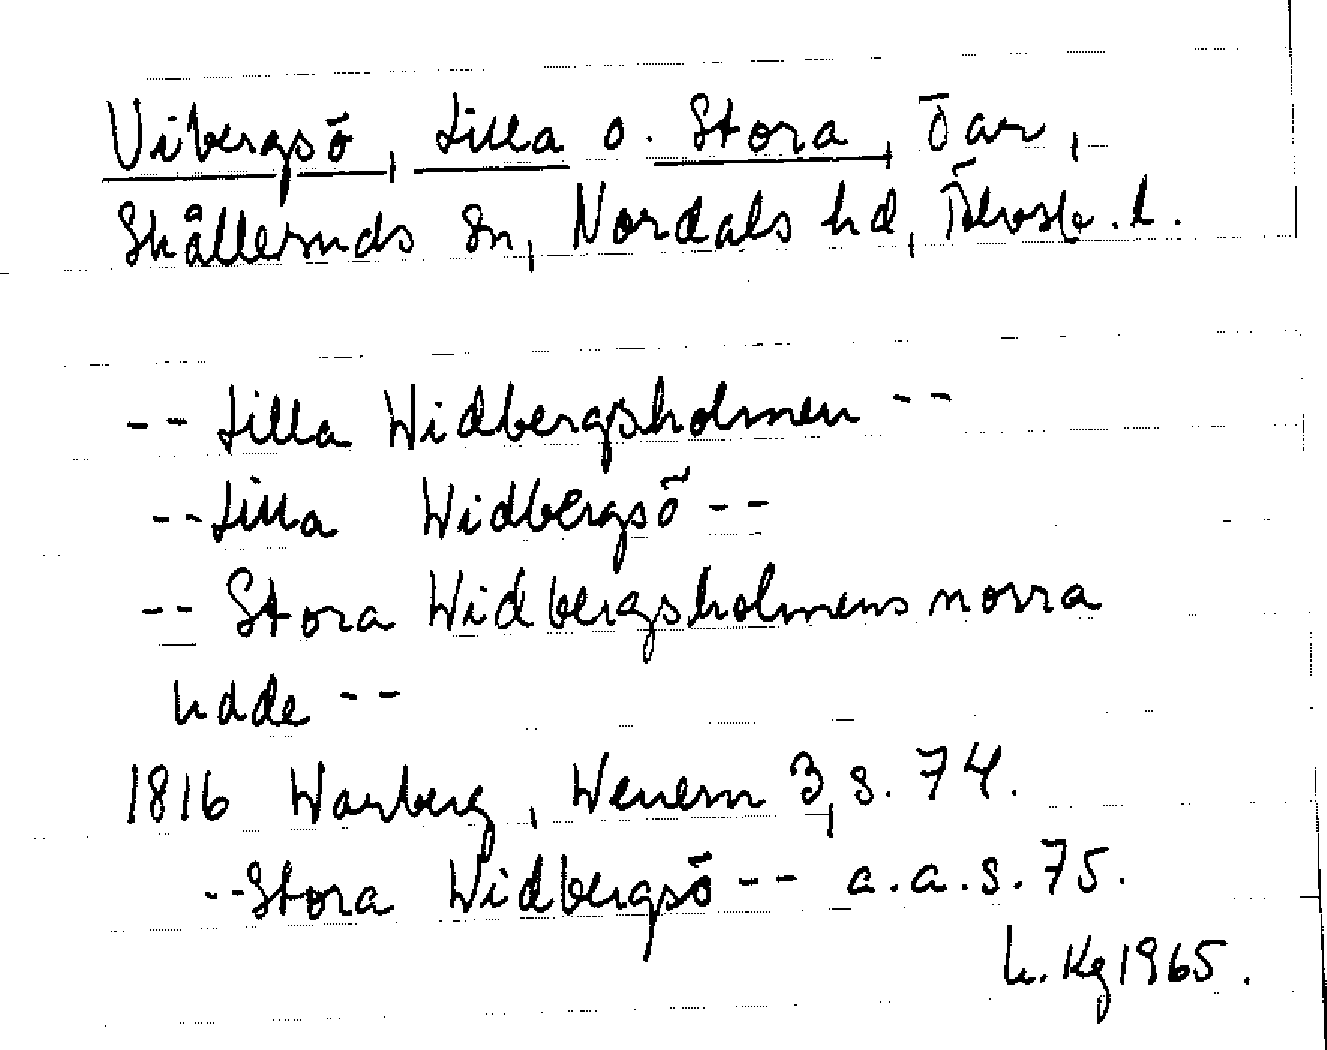 Vibergsö, Lilla o. Stora, öar,
Skållernds sn, Nordals hd, Älvsb. l.
-- Lilla Widbergsholmen --
-- Lilla Widbergsö --
-- Stora Widbergsholmens norra
udde --
1816 Warberg, Wenern 3, s. 74.
-- Stora Widbergsö -- a.a.s. 75.
L. Kg 1965.